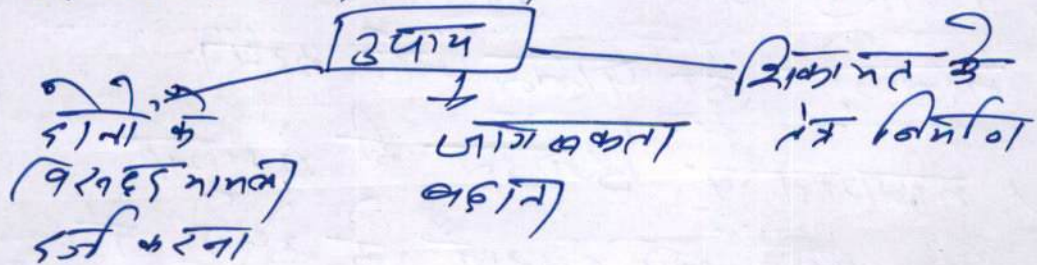 उपाय
दोनों के
विरूद्ध मामला
दर्ज करना
जागरूकता
बढ़ाना
शिकायत के
तंत्र निर्माण